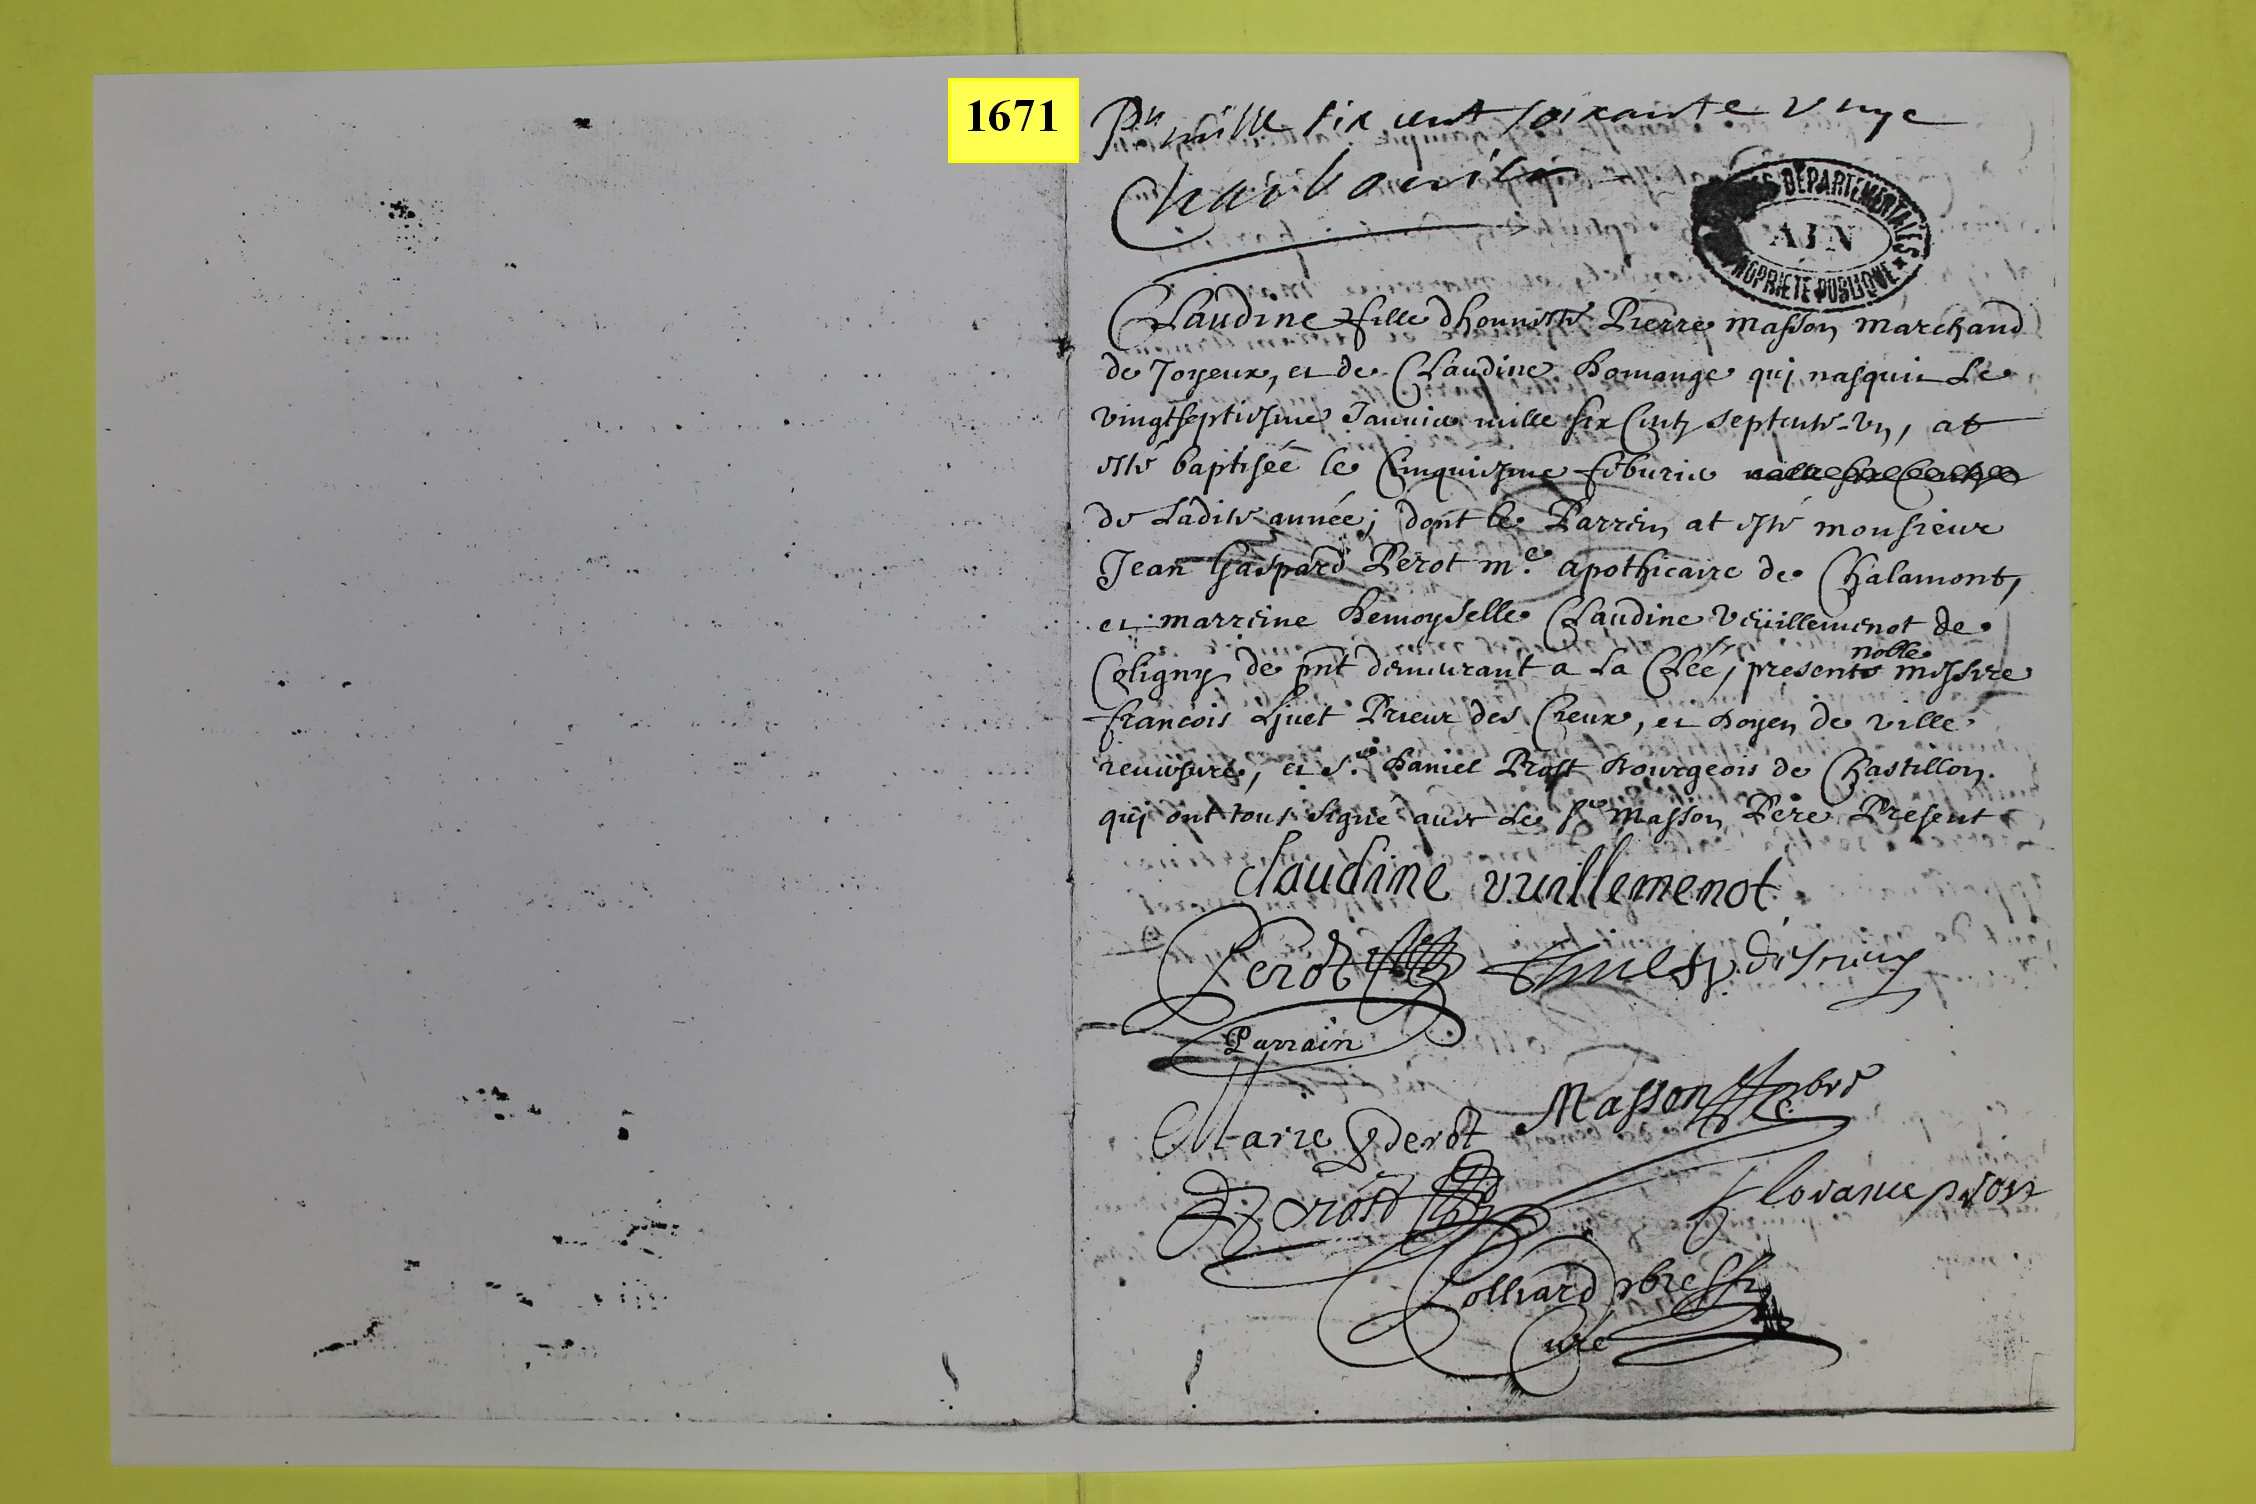 1671
mille six cent soixante unze
ARCHIVES DEPARTEMENTALES
AIN
PROPRIETE PUBLIQUE
Claudine fille d'honneste Pierre Masson marchand
de Joyeux, et de Claudine Domange qui nasquit le
vingtseptiesme Janvier mille six Centz septente-un, at
esté baptisée le Cinquiesme feburier
de Ladite année; dont le Parrein at esté monsieur
Jean Gaspard Perot m.e apothicaire de Chalamont,
et marreine Demoyselle Claudine Veüillemenot de
Coligny de pnt demeurant a La Clée, presents noble messire
francois Prieur des Creux, et Doyen de ville
reuersure, et s.r Daniel Prost Bourgeois de Chastillon.
qui ont tous signé avec Le Sr Masson Père Present
claudine vuillemenot
Perot
Parrain
Masson
Marie Perot
D. Prost
florance prost
Colliard
Curé